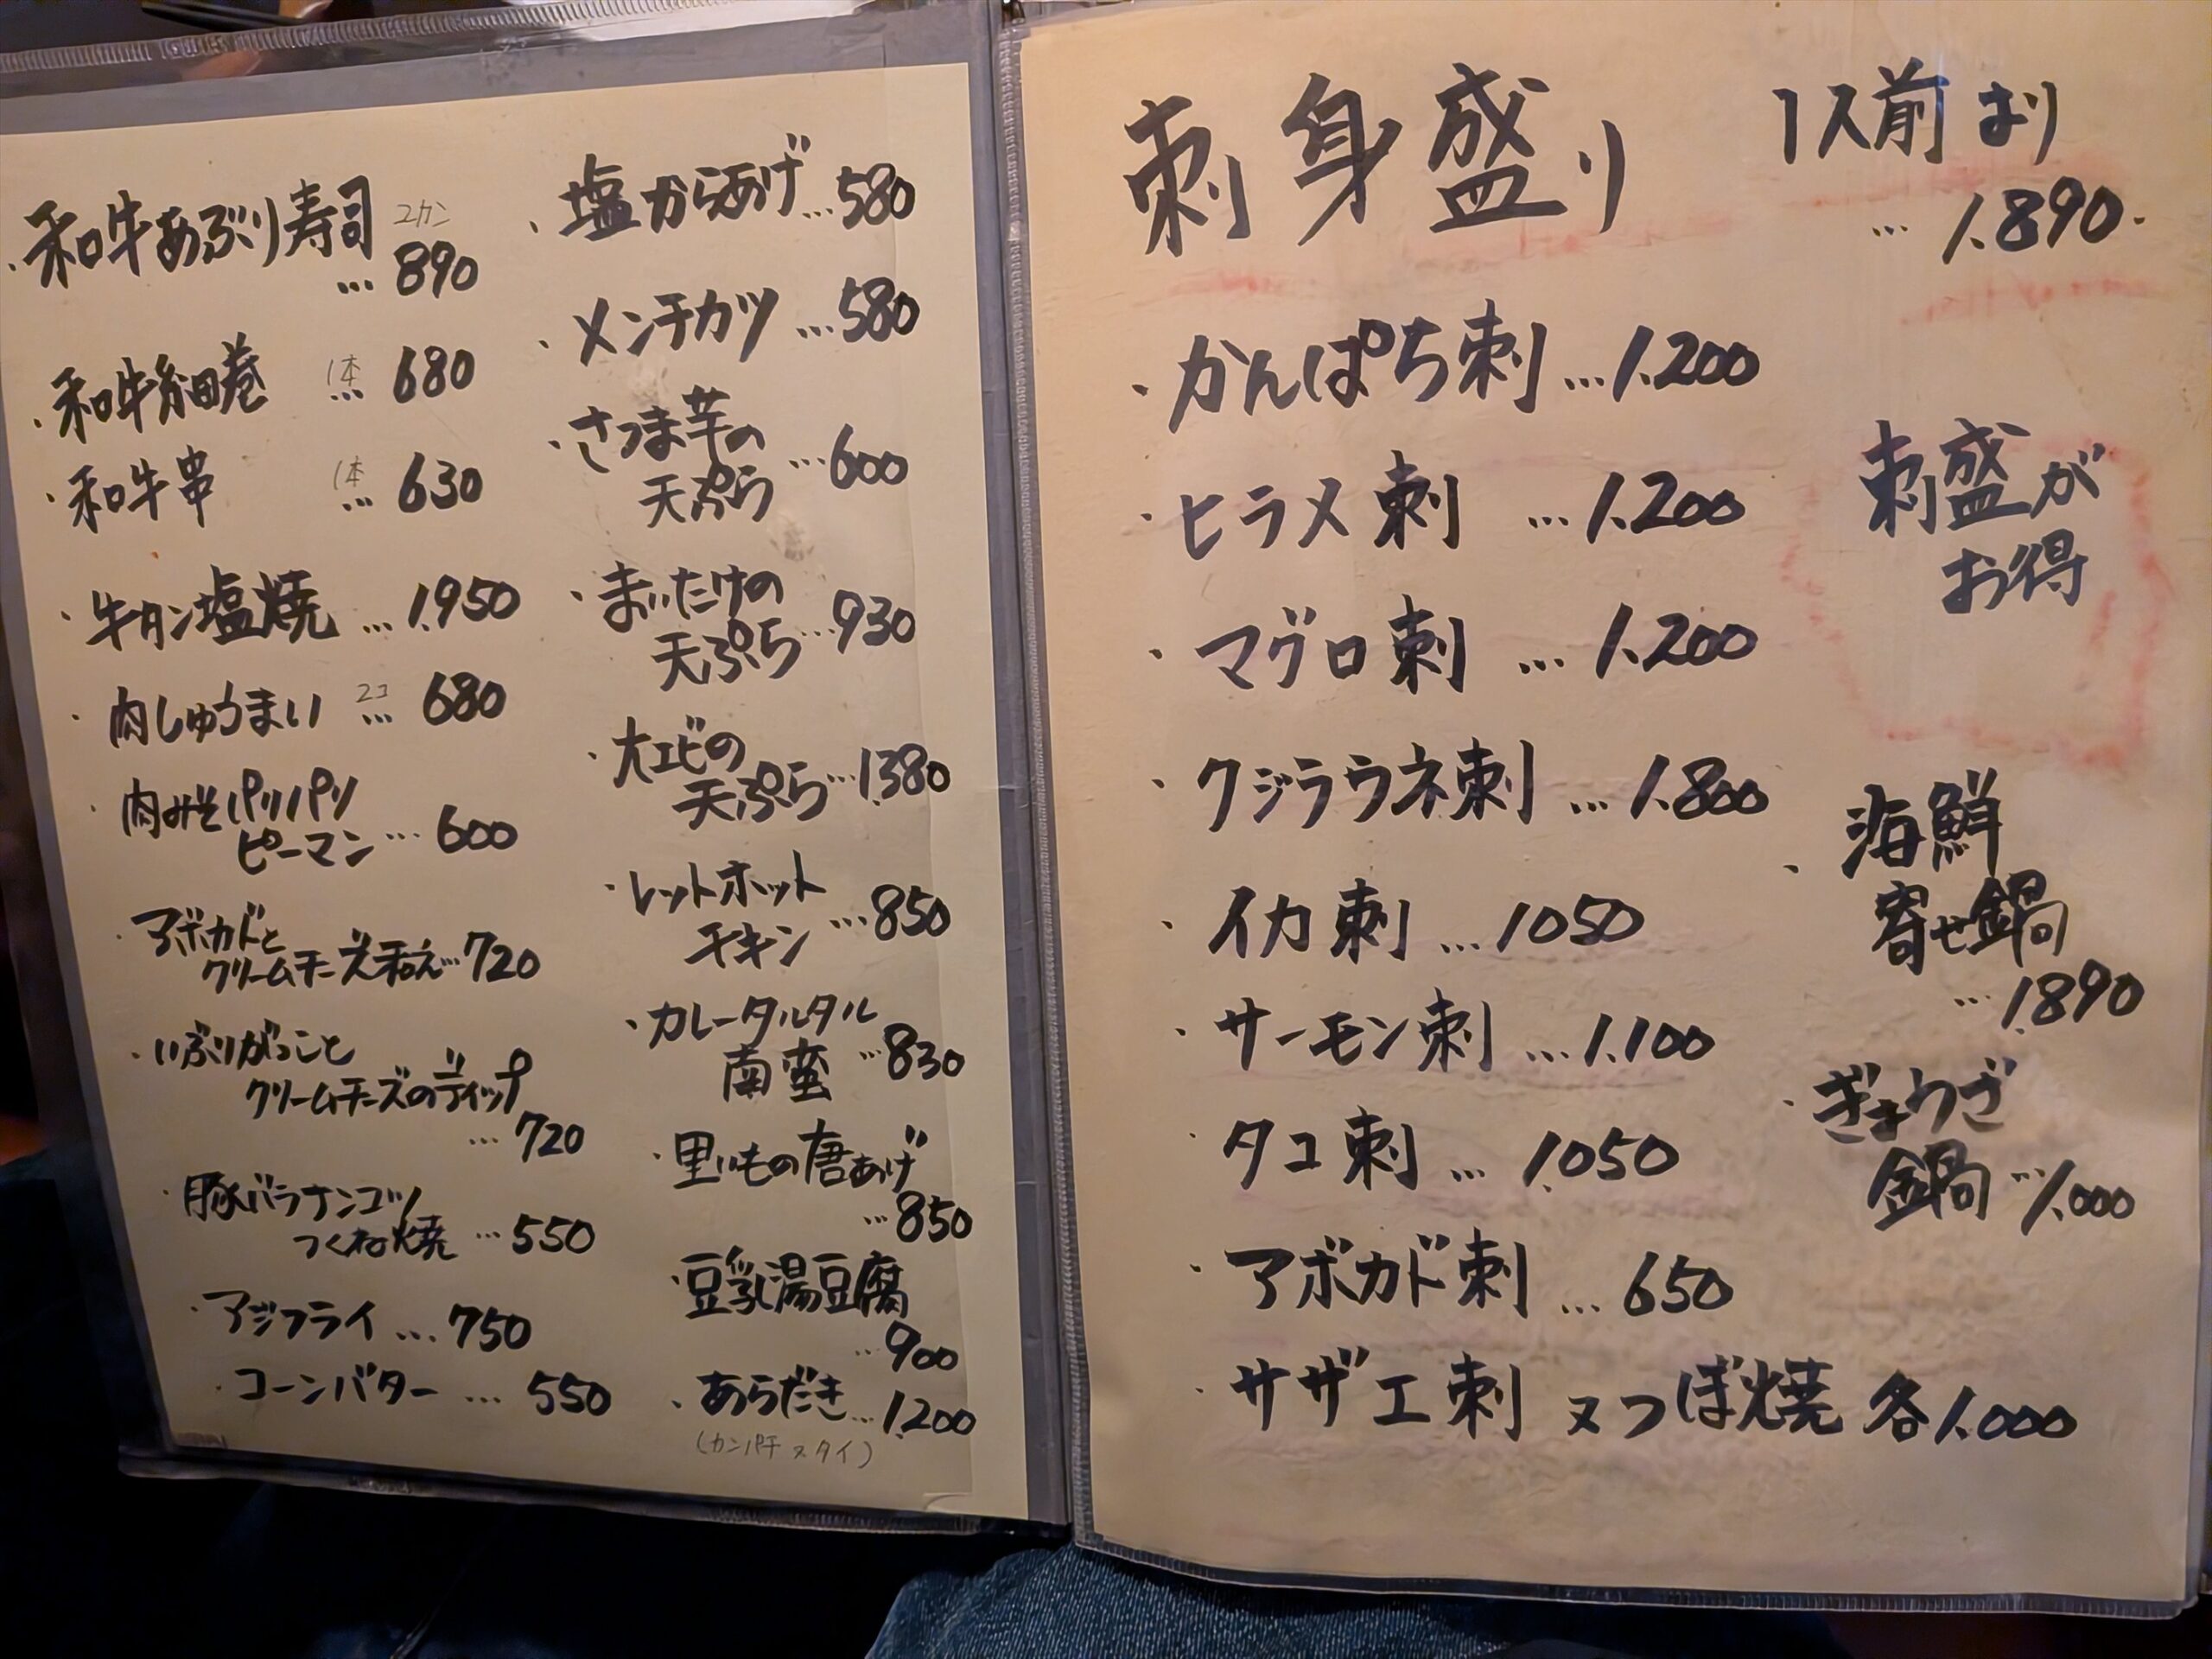 ・和牛あぶり寿司 2カン
…890
・和牛細巻 1本 … 680
・和牛串 1本 … 630
・牛タン塩焼 … 1,950
・肉しゅうまい 2コ … 680
・肉みそパリパリ
ピーマン … 600
・アボカドと
クリームチーズ和え … 720
・いぶりがっこと
クリームチーズのディップ
… 720
・豚バラナンコツ
つくね焼 … 550
・アジフライ … 750
・コーンバター … 550
・塩からあげ … 580
・メンチカツ … 580
・さつま芋の
天ぷら … 600
・まいたけの
天ぷら … 930
・大エビの
天ぷら … 1,380
・レットホット
チキン … 850
・カレータルタル
南蛮 … 830
・里いもの唐あげ
… 850
・豆乳湯豆腐
… 900
・あらだき … 1,200
(カンパチ又タイ)
刺身盛り 1人前より
… 1.890.
・かんぱち刺 … 1.200
・ヒラメ刺 … 1.200
・マグロ刺 … 1.200
・クジラウネ刺 … 1.800
・イカ刺 … 1050
・サーモン刺 … 1.100
・タコ刺 … 1.050
・アボカド刺 … 650
・サザエ刺 又つぼ焼 各1.000
刺盛が
お得
・海鮮
寄せ鍋
… 1.890
・ぎょうざ
鍋 … 1.000